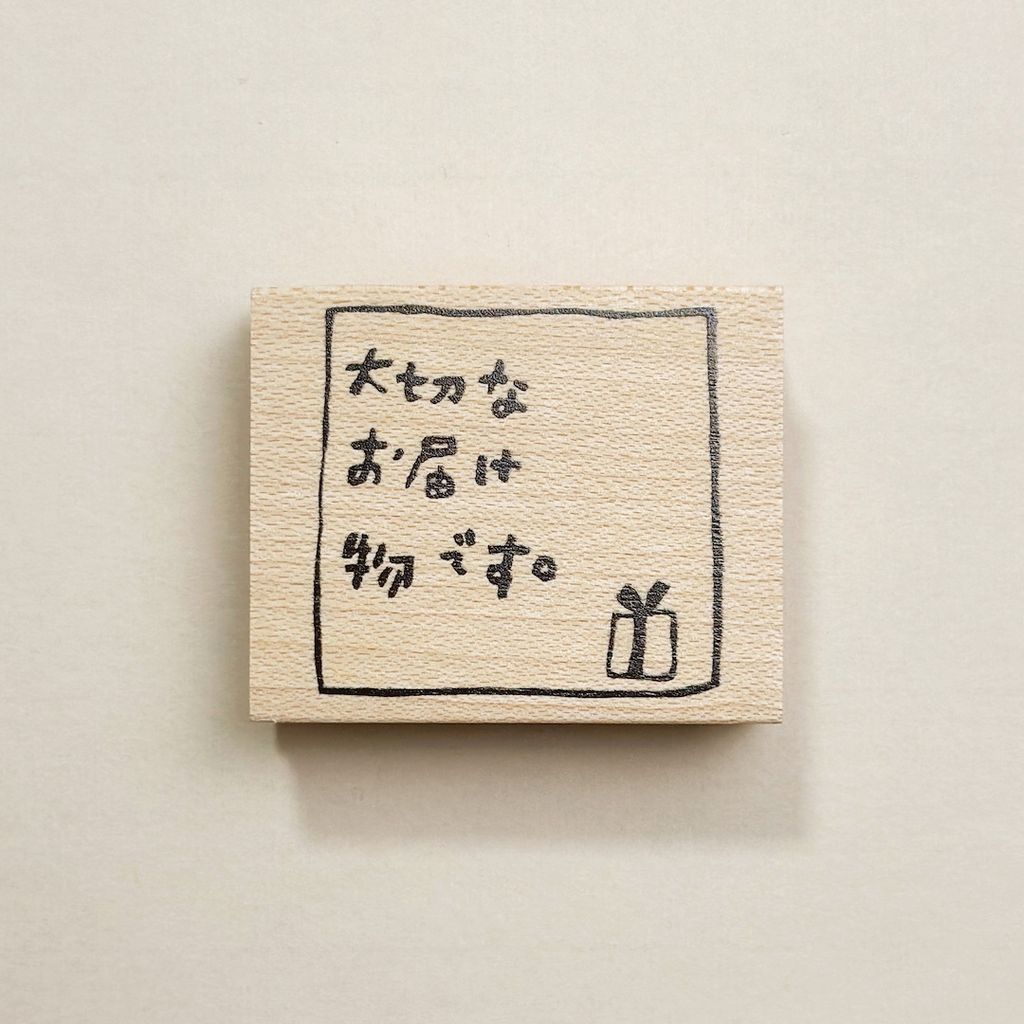 大切な
お届け
物です。